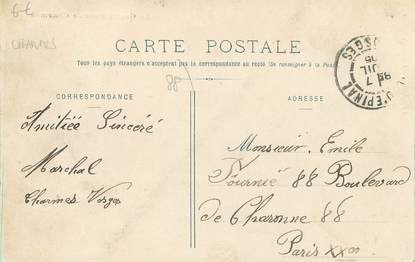 6€
CHARMES
CARTE POSTALE
Tous les pays étrangers n'acceptent pas la correspondance au recto (Se renseigner à la Poste)
88
CORRESPONDANCE
Amitiée Sincéré
Marchal
Charmes Vosges
ADRESSE
Monsieur. Emile
Fournié 88 Boulevard
de Charonne 88
Paris XX
D'EPINAL
VOSGES